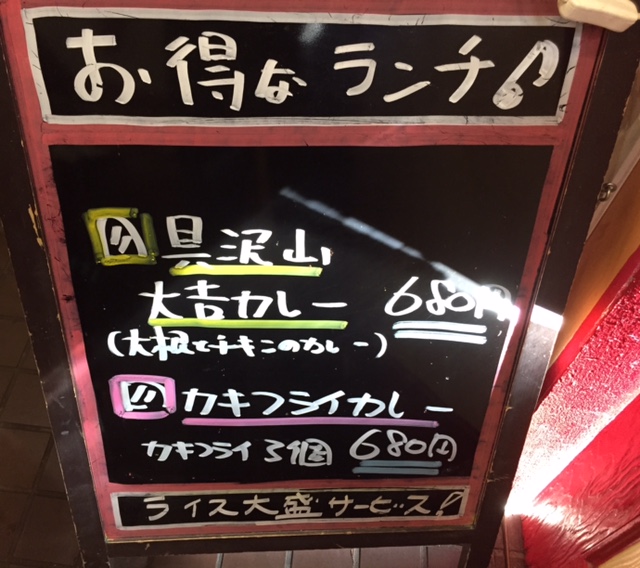 お得なランチ♪
具沢山
大吉カレー 680円
(大根とチキンのカレー)
カキフライカレー
カキフライ3個 680円
ライス大盛サービス!